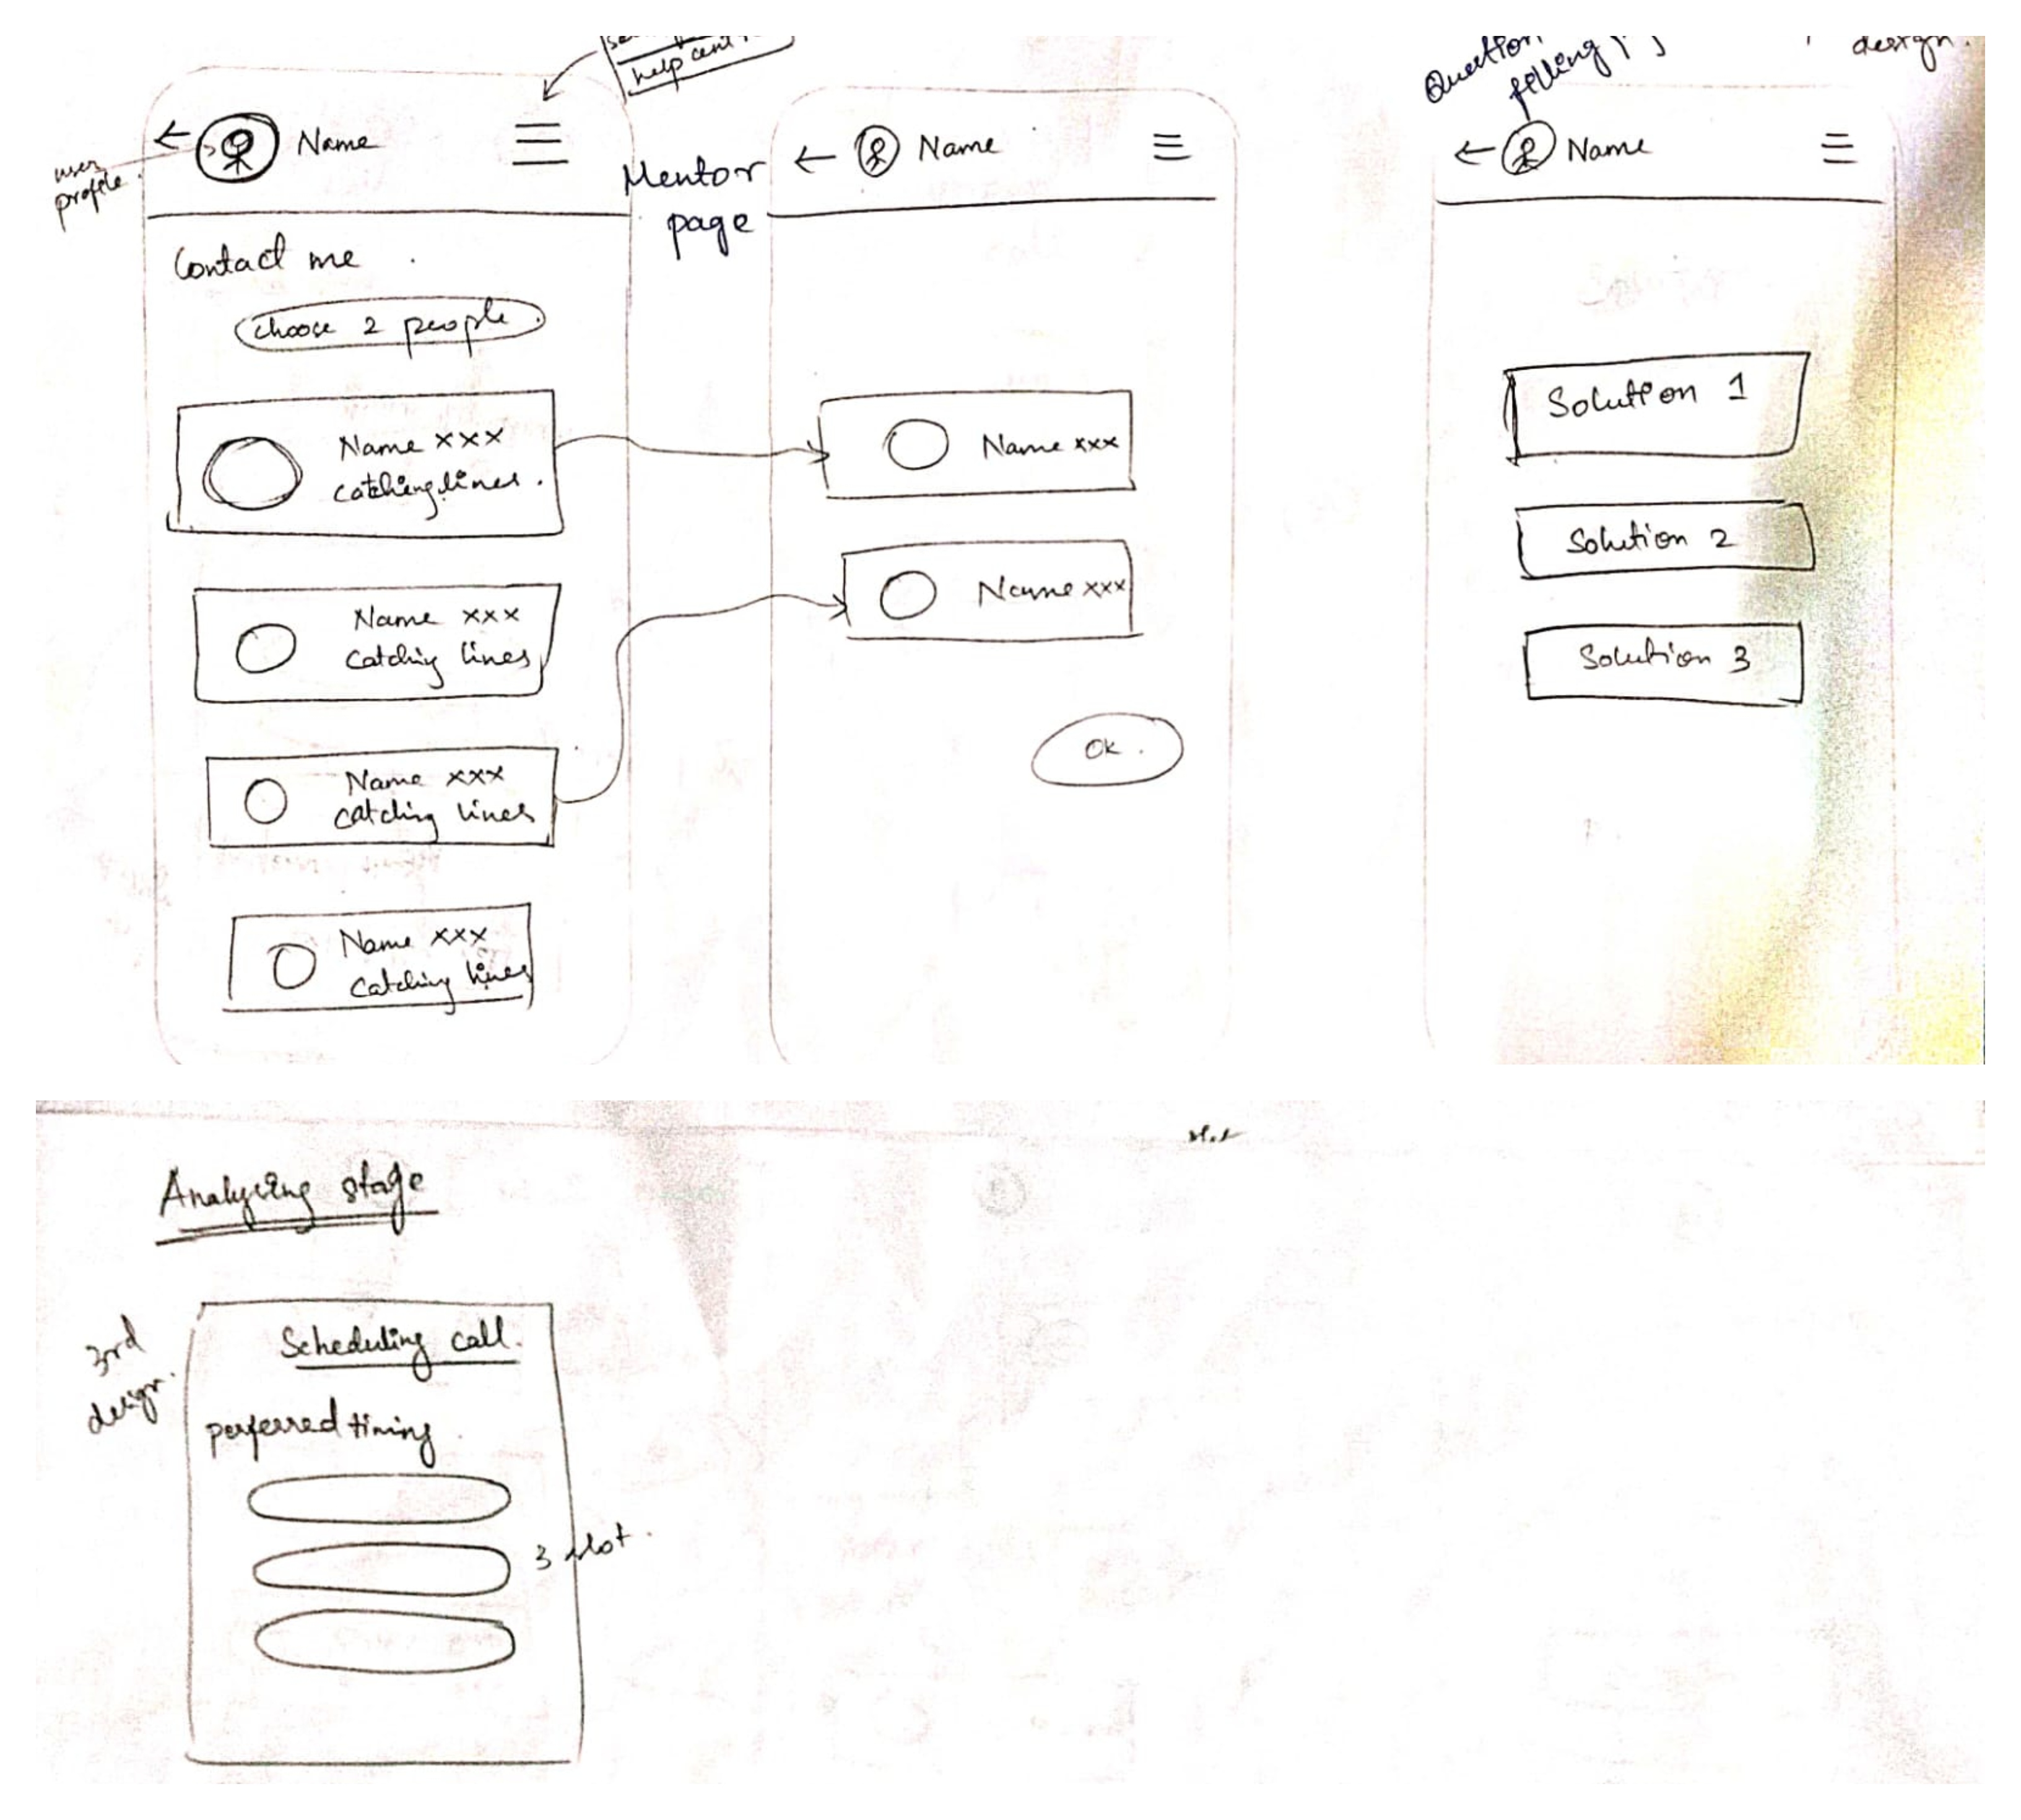 help cent
Question
filling
design.
user
profile.
Name
Contact me
choose 2 people.
Name xxx
catching lines.
Name xxx
Catching lines
Name xxx
catching lines
Name xxx
Catching lines
Mentor
page
Name
Name xxx
Name xxx
Ok.
Name
Solution 1
Solution 2
Solution 3
Analyzing stage
3rd
design.
Scheduling call.
perferred timing
3 slot.